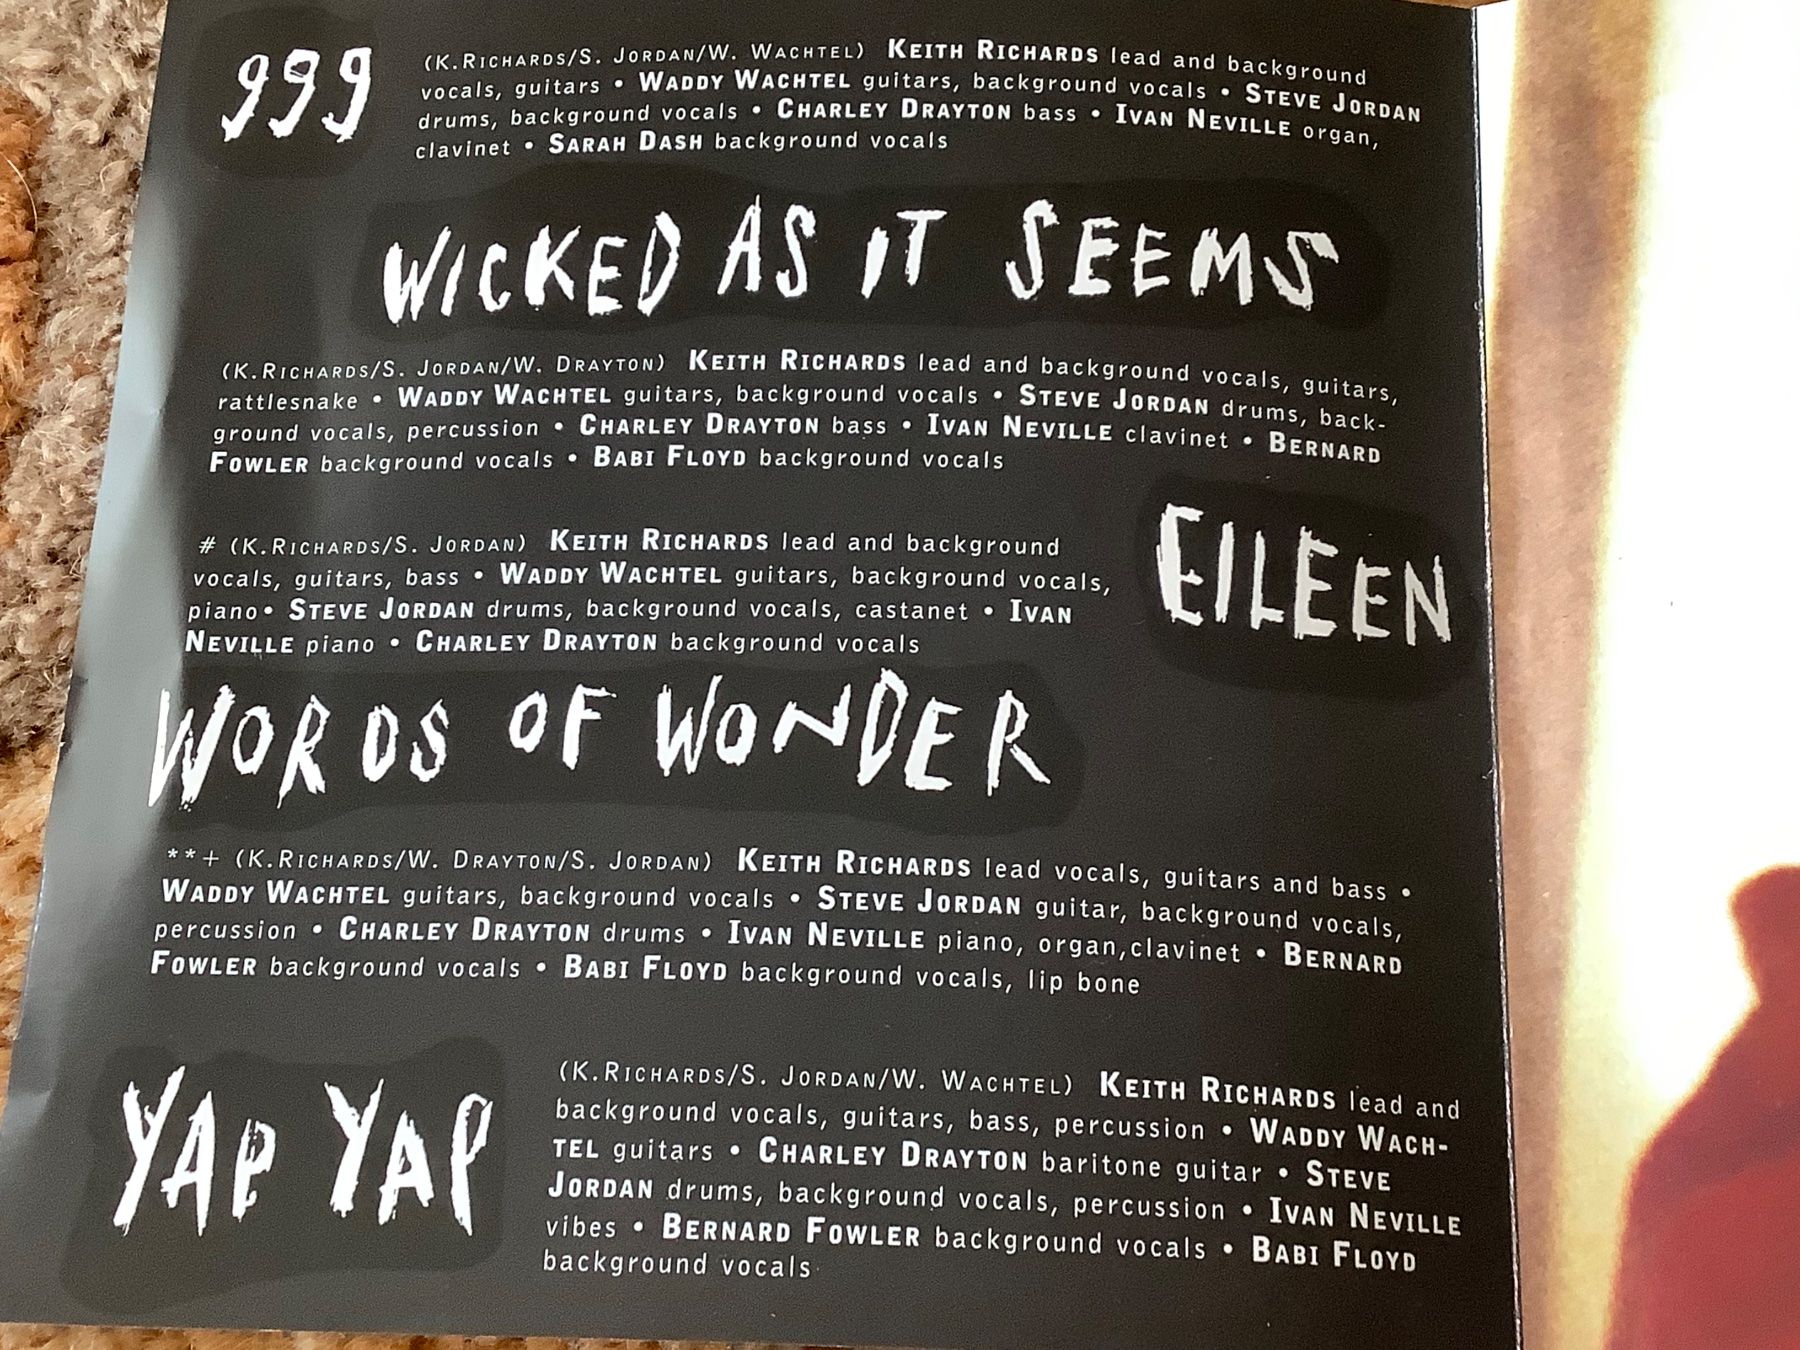 999
(K.Richards/S. Jordan/W. Wachtel) Keith Richards lead and background
vocals, guitars • Waddy Wachtel guitars, background vocals • Steve Jordan
drums, background vocals • Charley Drayton bass • Ivan Neville organ,
clavinet • Sarah Dash background vocals
WICKED AS IT SEEMS
(K.Richards/S. Jordan/W. Drayton) Keith Richards lead and background vocals, guitars,
rattlesnake • Waddy Wachtel guitars, background vocals • Steve Jordan drums, back-
ground vocals, percussion • Charley Drayton bass • Ivan Neville clavinet • Bernard
Fowler background vocals • Babi Floyd background vocals
EILEEN
# (K.Richards/S. Jordan) Keith Richards lead and background
vocals, guitars, bass • Waddy Wachtel guitars, background vocals,
piano• Steve Jordan drums, background vocals, castanet • Ivan
Neville piano • Charley Drayton background vocals
WORDS OF WONDER
**+ (K.Richards/W. Drayton/S. Jordan) Keith Richards lead vocals, guitars and bass •
Waddy Wachtel guitars, background vocals • Steve Jordan guitar, background vocals,
percussion • Charley Drayton drums • Ivan Neville piano, organ,clavinet • Bernard
Fowler background vocals • Babi Floyd background vocals, lip bone
YAP YAP
(K.Richards/S. Jordan/W. Wachtel) Keith Richards lead and
background vocals, guitars, bass, percussion • Waddy Wach-
tel guitars • Charley Drayton baritone guitar • Steve
Jordan drums, background vocals, percussion • Ivan Neville
vibes • Bernard Fowler background vocals • Babi Floyd
background vocals